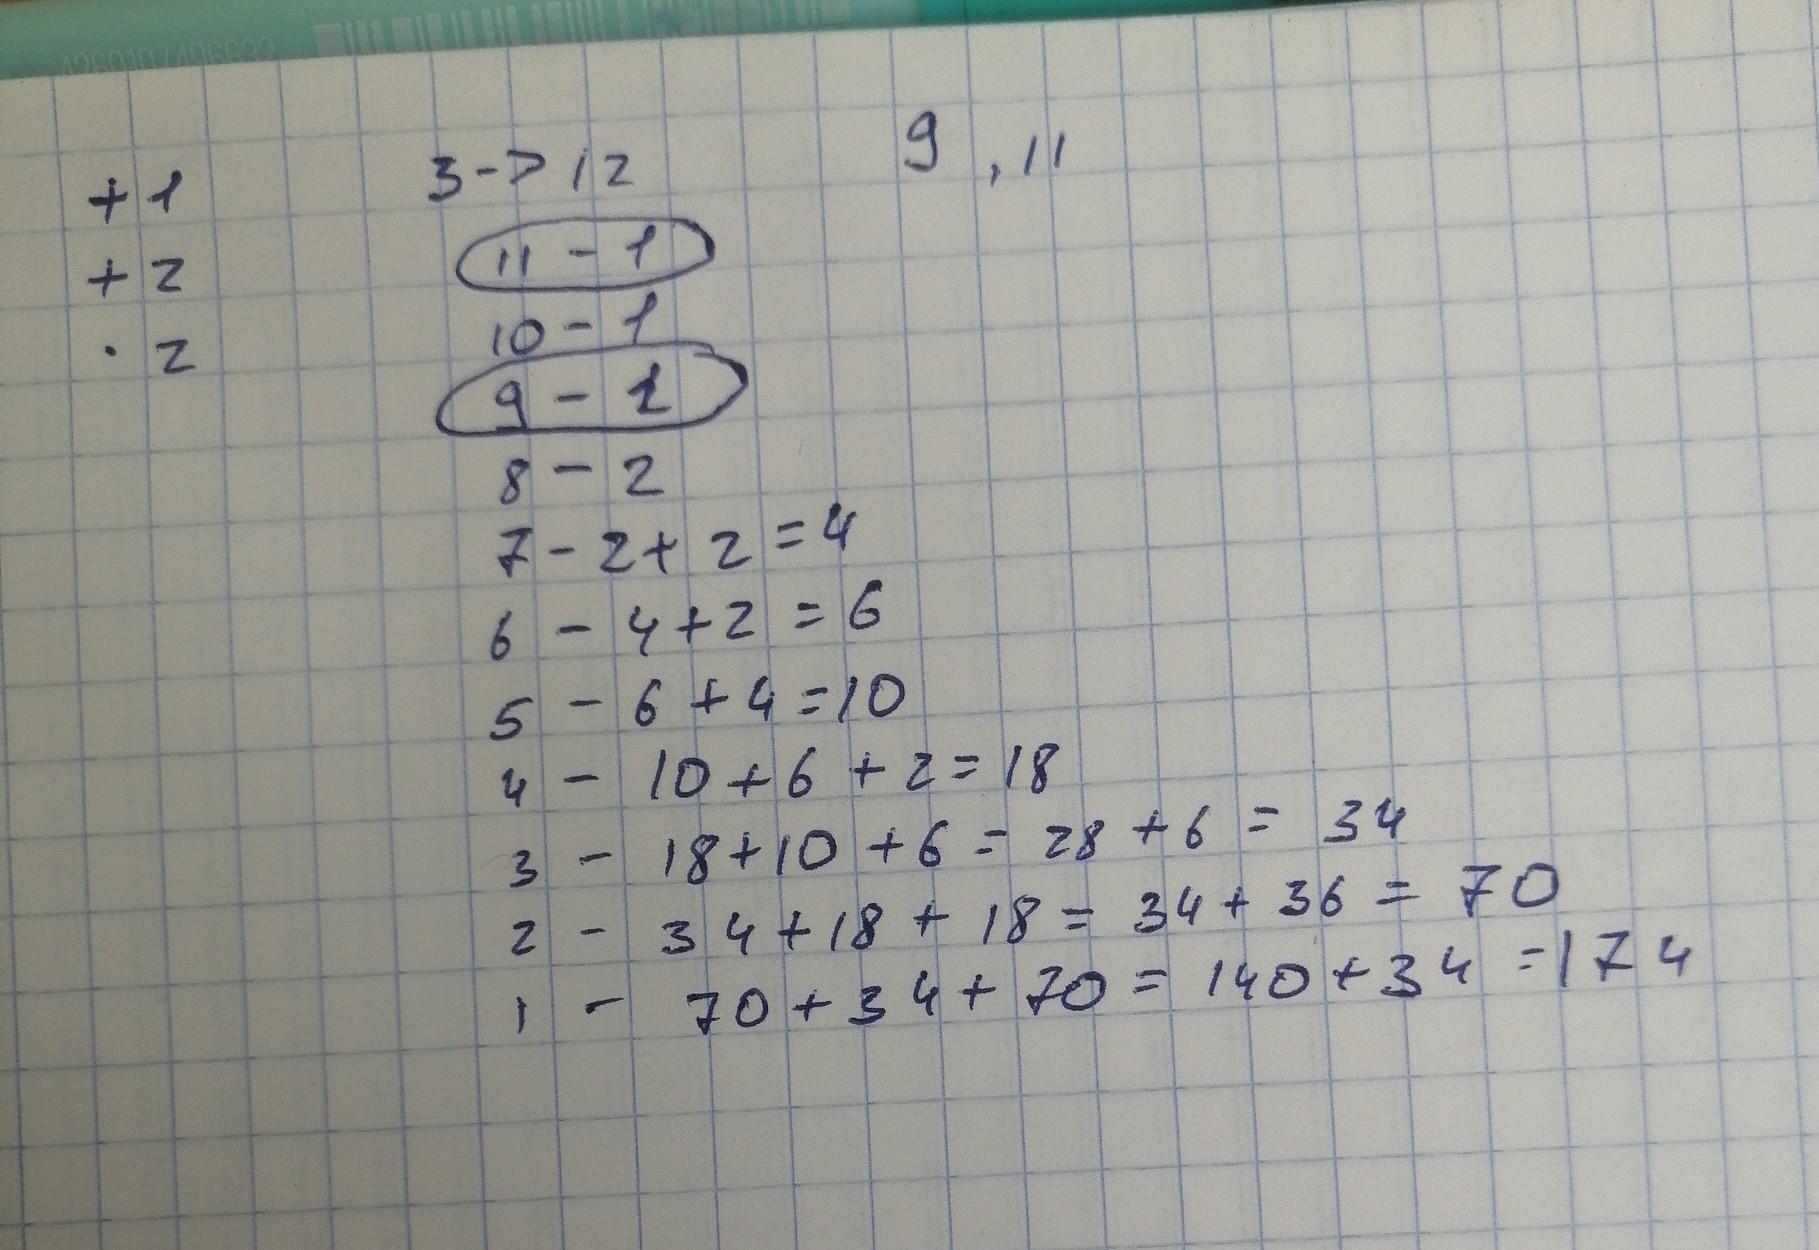 4260107496632
9 , 11
+ 1
3 -> 12
11 - 1
+ 2
10 - 1
· 2
9 - 1
8 - 2
7 - 2 + 2 = 4
6 - 4 + 2 = 6
5 - 6 + 4 = 10
4 - 10 + 6 + 2 = 18
3 - 18 + 10 + 6 = 28 + 6 = 34
2 - 34 + 18 + 18 = 34 + 36 = 70
1 - 70 + 34 + 70 = 140 + 34 = 174